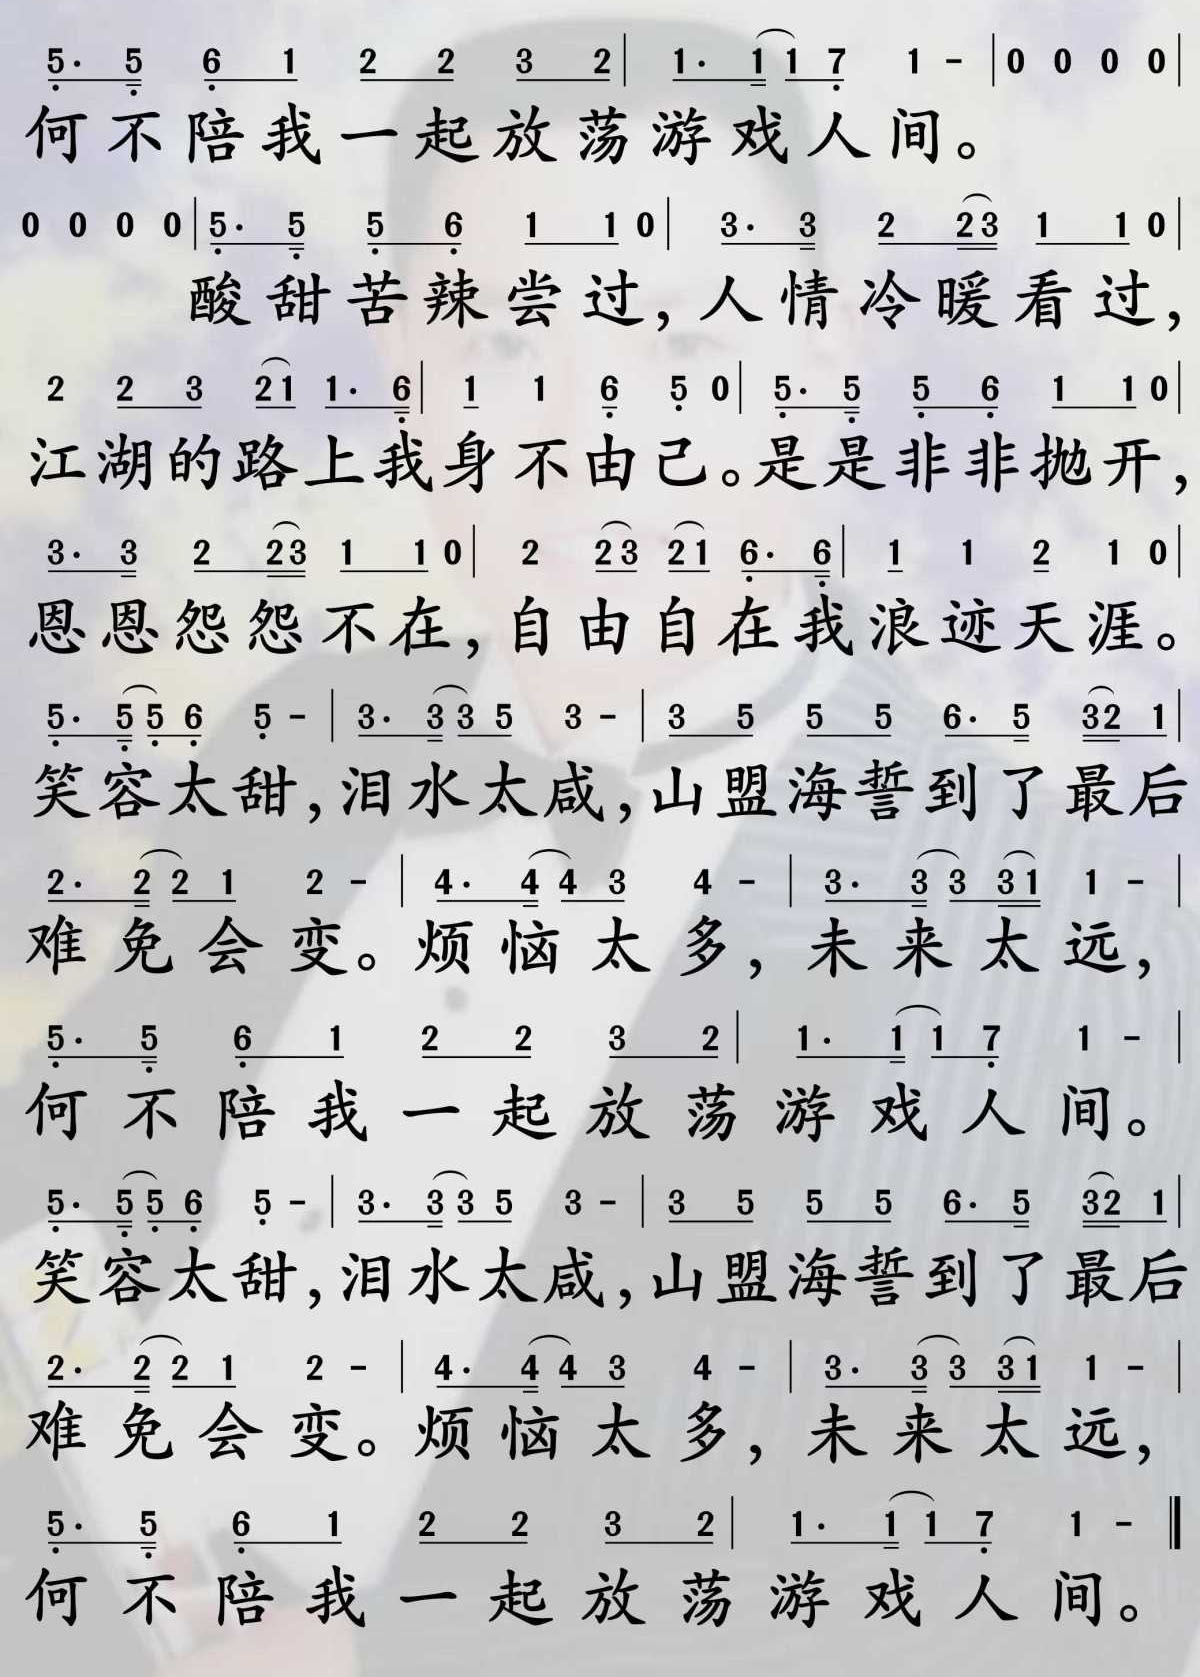 5· 5 6 1 2 2 3 2 | 1· 1 1 7 1 - | 0 0 0 0 |
何不陪我一起放荡游戏人间。
0 0 0 0 | 5· 5 5 6 1 1 0 | 3· 3 2 2 3 1 1 0 |
酸甜苦辣尝过,人情冷暖看过,
2 2 3 2 1 1· 6 | 1 1 6 5 0 | 5· 5 5 6 1 1 0 |
江湖的路上我身不由己。是是非非抛开,
3· 3 2 2 3 1 1 0 | 2 2 3 2 1 6· 6 | 1 1 2 1 0 |
恩恩怨怨不在,自由自在我浪迹天涯。
5· 5 5 6 5 - | 3· 3 3 5 3 - | 3 5 5 5 6· 5 3 2 1 |
笑容太甜,泪水太咸,山盟海誓到了最后
2· 2 2 1 2 - | 4· 4 4 3 4 - | 3· 3 3 3 1 1 - |
难免会变。烦恼太多,未来太远,
5· 5 6 1 2 2 3 2 | 1· 1 1 7 1 - |
何不陪我一起放荡游戏人间。
5· 5 5 6 5 - | 3· 3 3 5 3 - | 3 5 5 5 6· 5 3 2 1 |
笑容太甜,泪水太咸,山盟海誓到了最后
2· 2 2 1 2 - | 4· 4 4 3 4 - | 3· 3 3 3 1 1 - |
难免会变。烦恼太多,未来太远,
5· 5 6 1 2 2 3 2 | 1· 1 1 7 1 - ‖
何不陪我一起放荡游戏人间。